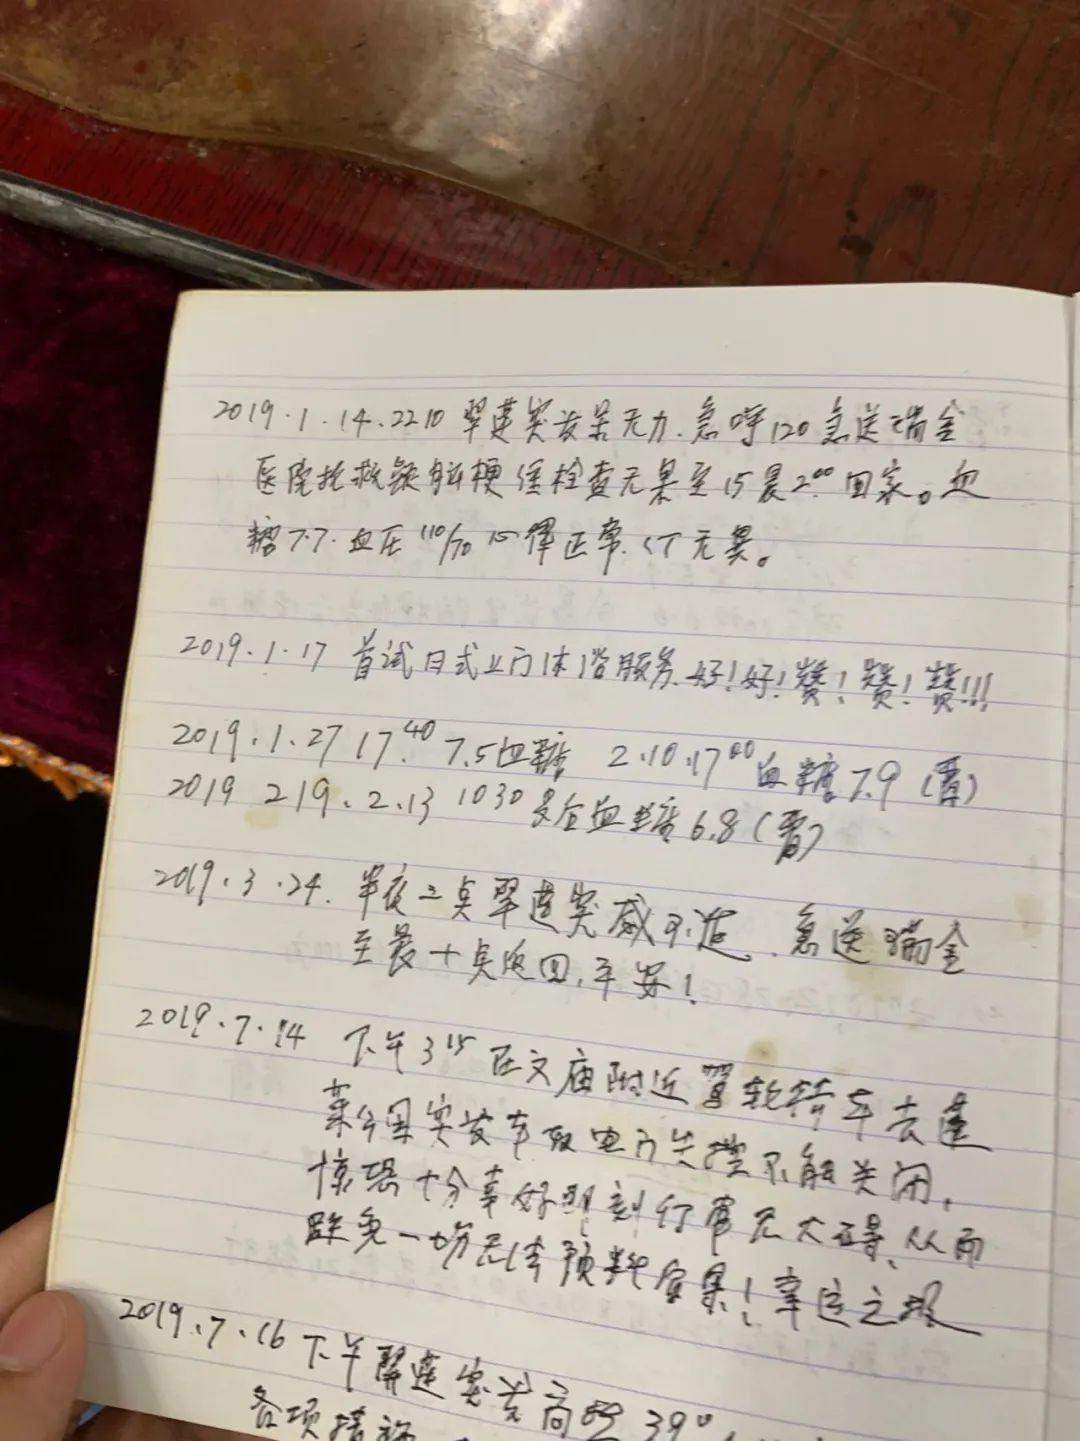 2019.1.14.2210 翠莲突发呆无力.急呼120急送瑞金
医院抢救疑脑梗经检查无果至15晨2⁰⁰回家。血
糖7.7.血压110/70心律正常.CT无异。
2019.1.17 首试日式上门沐浴服务.好!好!赞!赞!赞!!!
2019.1.27 17.⁴⁰ 7.5血糖 2.10.17⁰⁰血糖7.9(胃)
2019 219.2.13 1030 血糖6.8(胃)
2019.3.24.半夜二点翠莲突感不适.急送瑞金
至晨十点返回,平安!
2019.7.14 下午3¹⁵在文庙附近驾轿车去蓬
莱公园突发车 电门失控不能关闭,
惊恐十分幸好即刻行车无大碍,从而
避免一场无法预料后果!幸运之极
2019.7.16 下午翠莲突发高烧39°,
各项措施